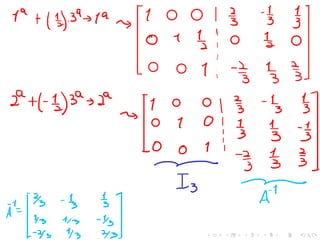 1ª + (1/2)3ª → 1ª ⤳ [1 0 0 | 2/3 -1/3 1/3]
[0 1 1/2 | 0 1/2 0]
[0 0 1 | -2/3 1/3 2/3]
2ª + (-1/2)3ª → 2ª ⤳ [1 0 0 | 2/3 -1/3 1/3]
[0 1 0 | 1/3 1/3 -1/3]
[0 0 1 | -2/3 1/3 2/3]
I₃ A⁻¹
A⁻¹ = [2/3 -1/3 1/3]
[1/3 1/3 -1/3]
[-2/3 1/3 2/3]